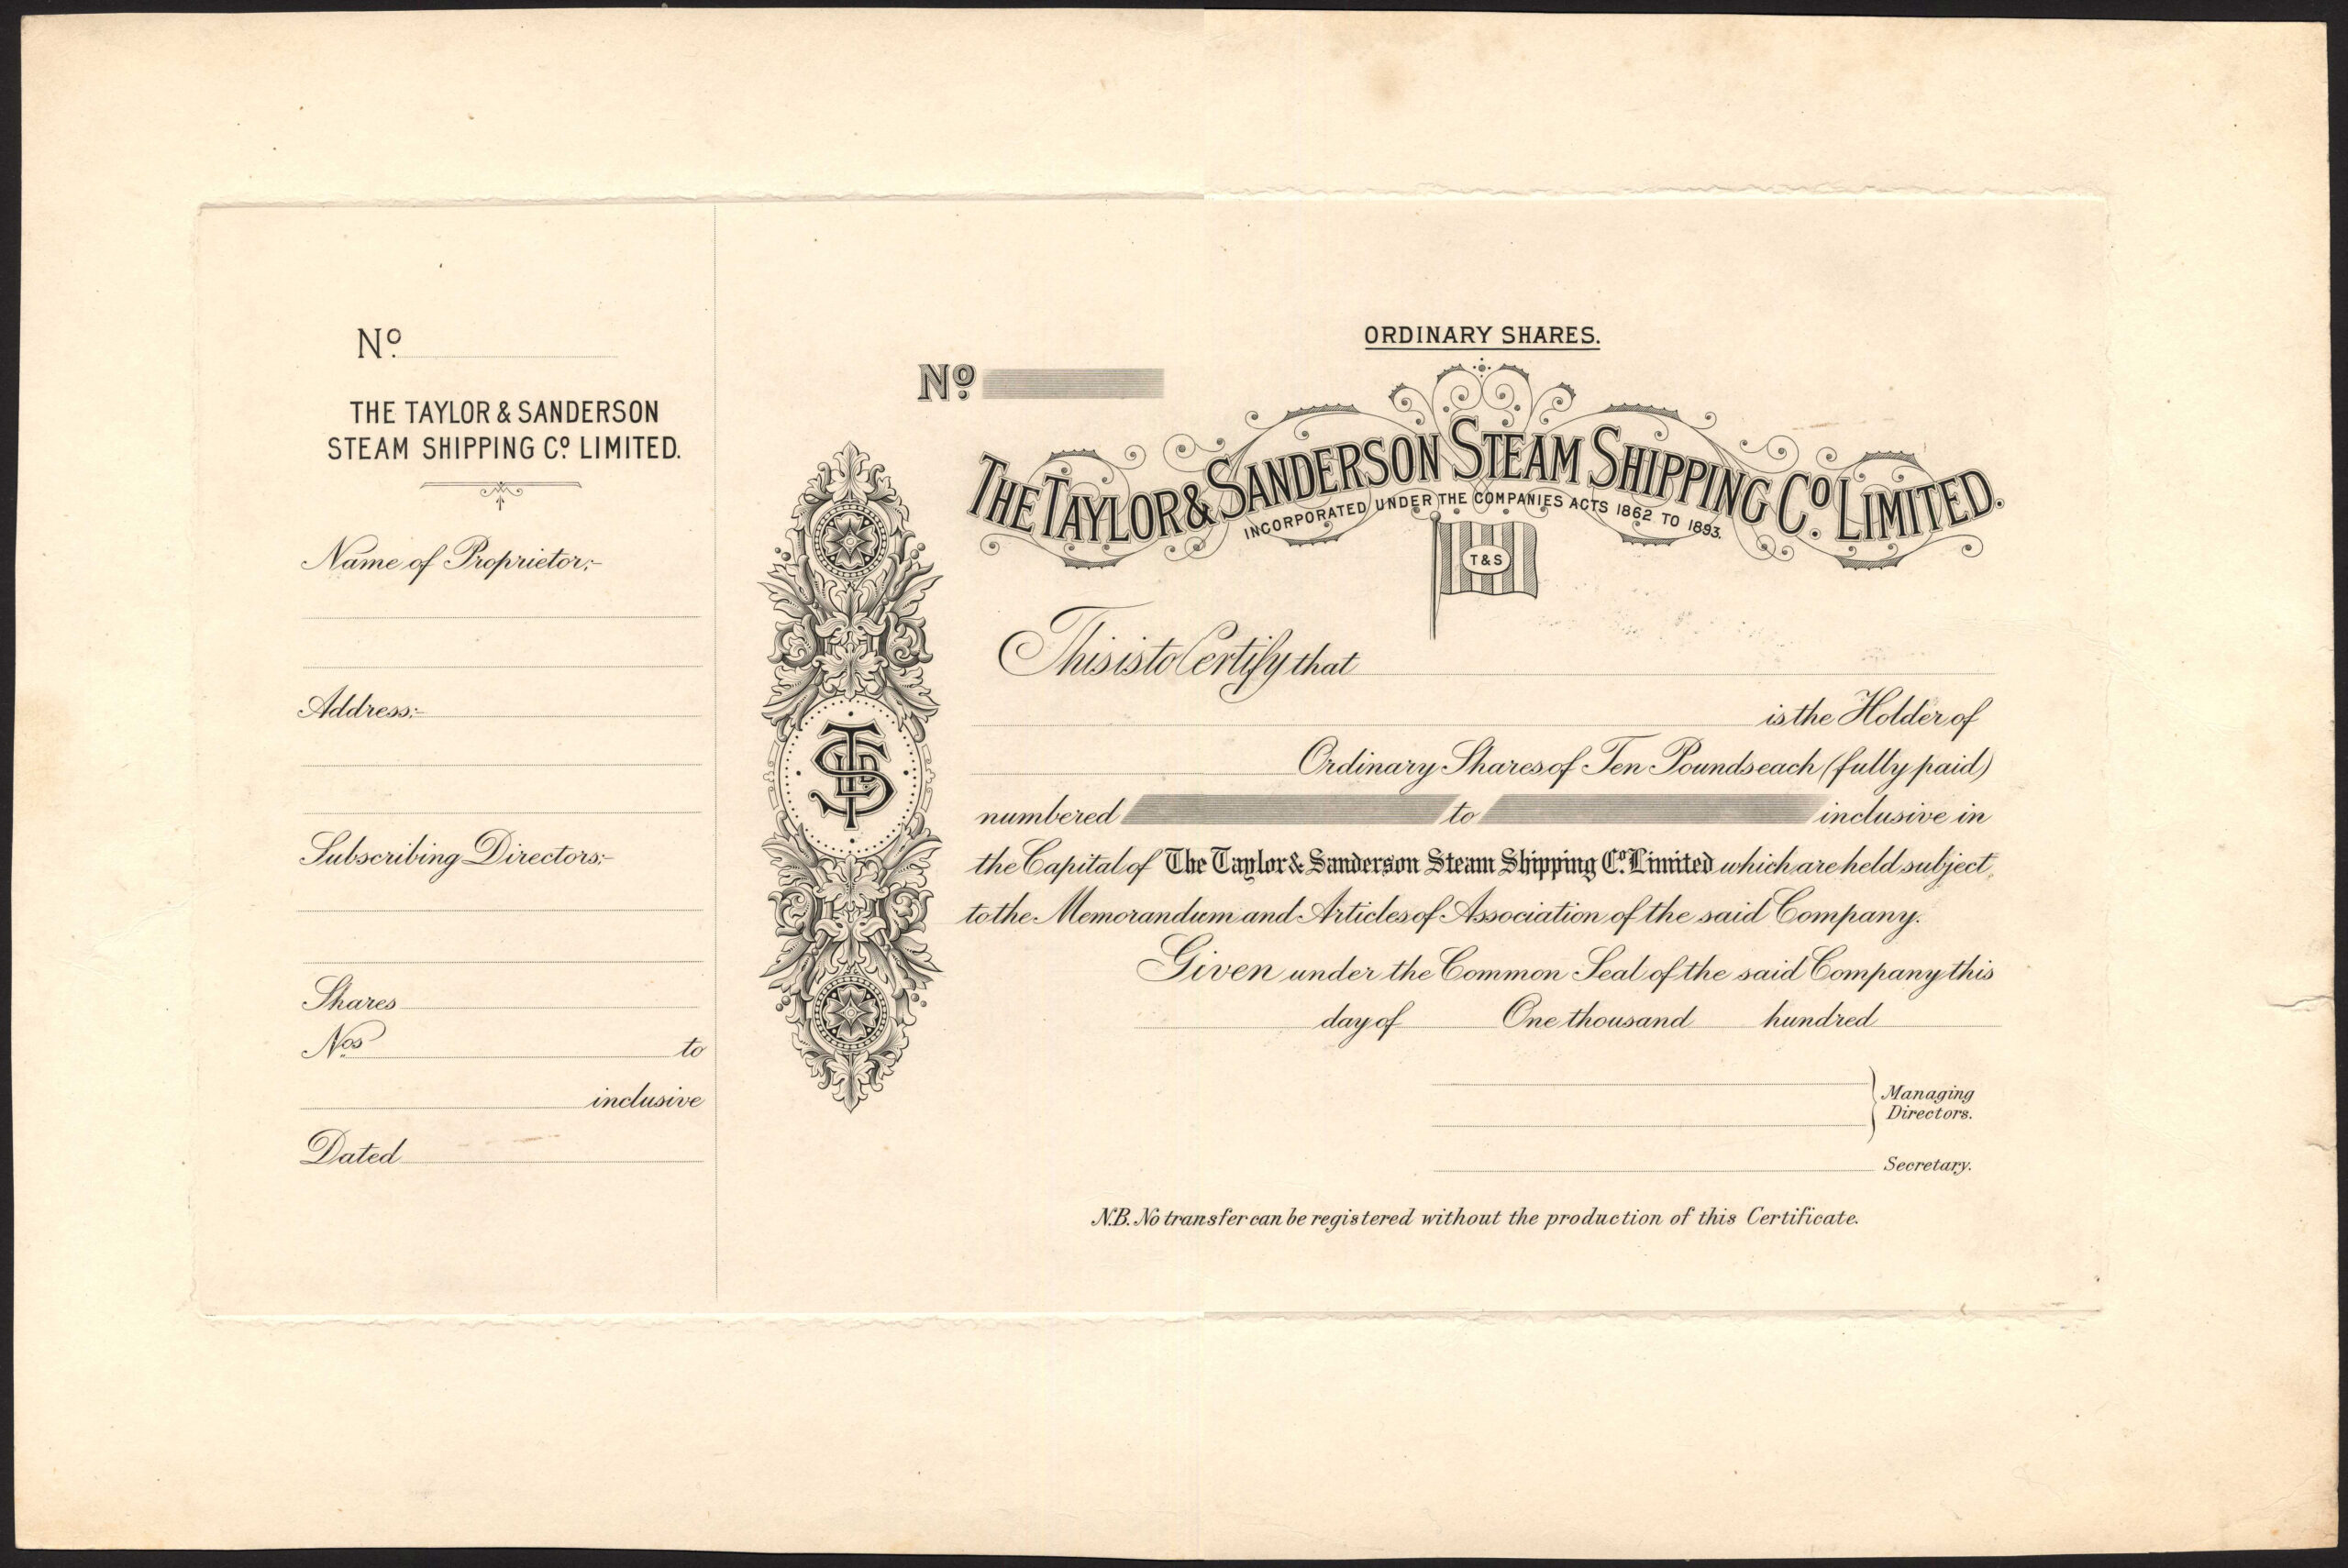 Nº
THE TAYLOR & SANDERSON
STEAM SHIPPING Cº LIMITED.
Name of Proprietor:-
Address:-
Subscribing Directors:-
Shares
Nos to
inclusive
Dated
ORDINARY SHARES.
Nº
THE TAYLOR & SANDERSON STEAM SHIPPING Cº LIMITED.
INCORPORATED UNDER THE COMPANIES ACTS 1862 TO 1893.
T & S
This is to Certify that
is the Holder of
Ordinary Shares of Ten Pounds each (fully paid)
numbered to inclusive in
the Capital of The Taylor & Sanderson Steam Shipping Cº Limited which are held subject,
to the Memorandum and Articles of Association of the said Company.
Given under the Common Seal of the said Company this
day of One thousand hundred
Managing
Directors.
Secretary.
N.B. No transfer can be registered without the production of this Certificate.